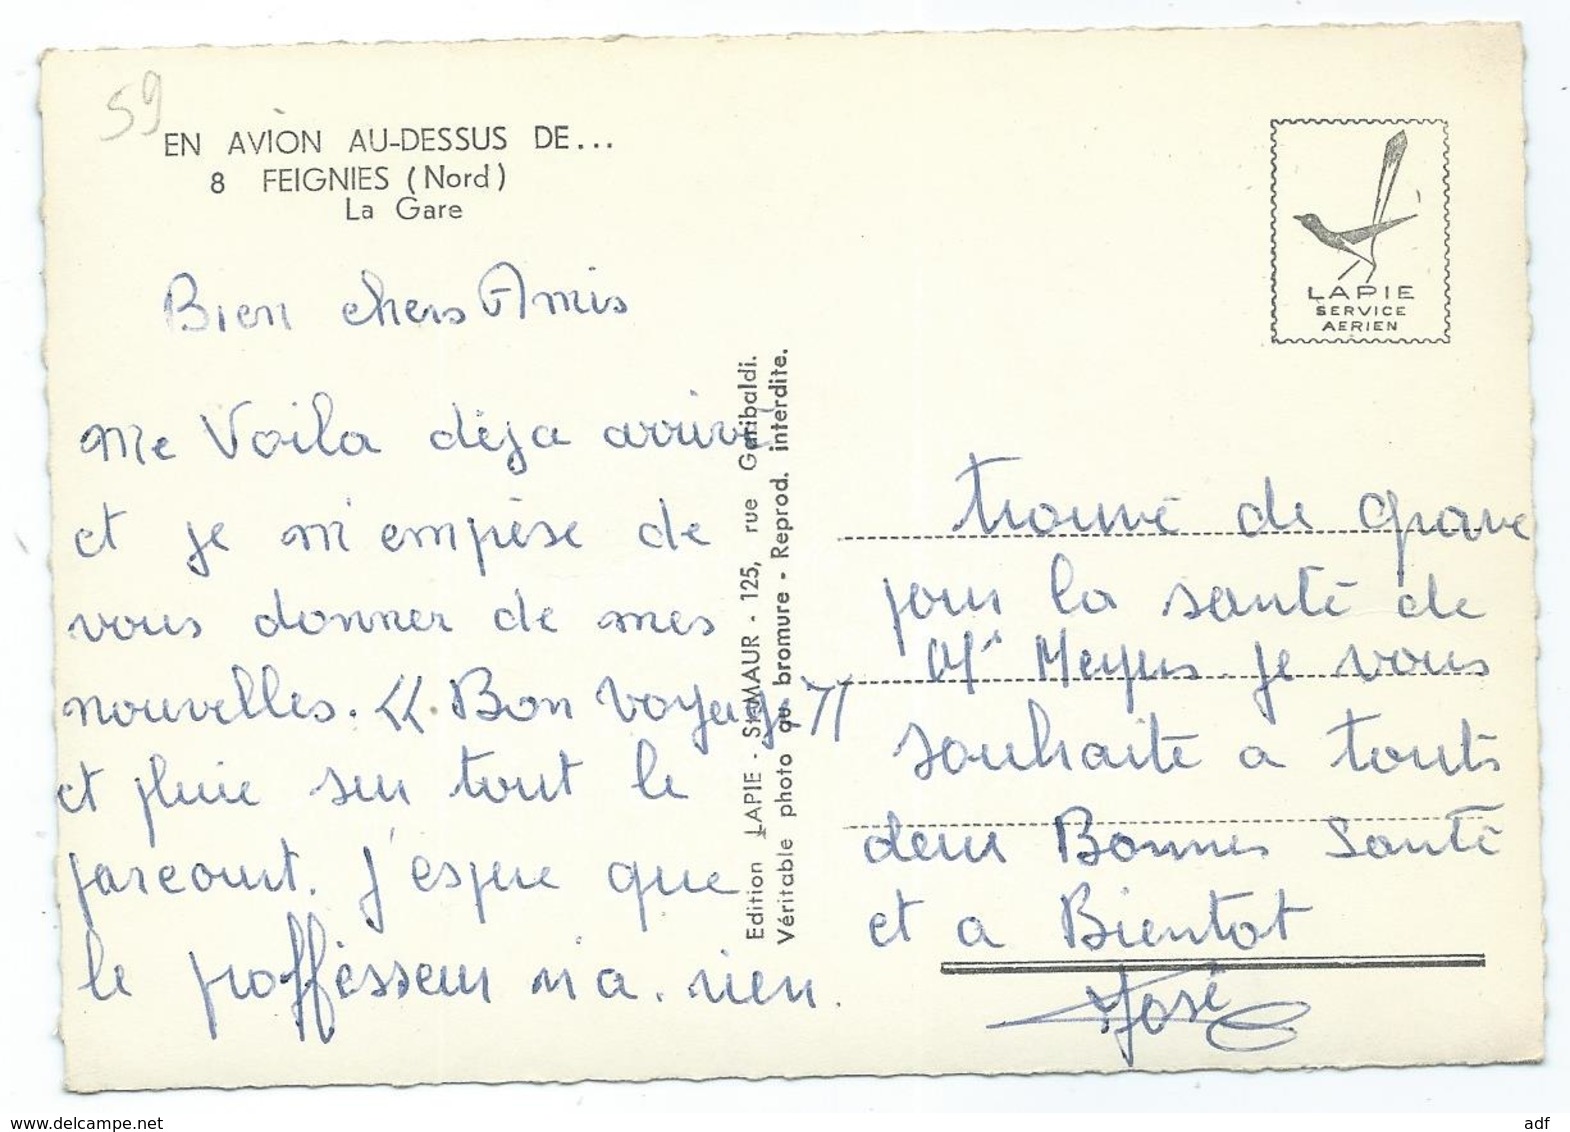 59
EN AVION AU-DESSUS DE...
8 FEIGNIES (Nord)
La Gare
LAPIE
SERVICE
AERIEN
Bien chers Amis
Me Voila déja arrivé
et je m'emprèse de
vous donner de mes
nouvelles. << Bon voyage >>
et pluie sur tout le
parcourt. J'espere que
le proffésseur n'a. rien.
Edition LAPIE - St-MAUR - 125, rue Garibaldi.
Véritable photo au bromure - Reprod. interdite.
trouvé de grave
pour la santé de
Mr je vous
souhaite a touts
deux Bonnes Santé
et a Bientot
José
adf